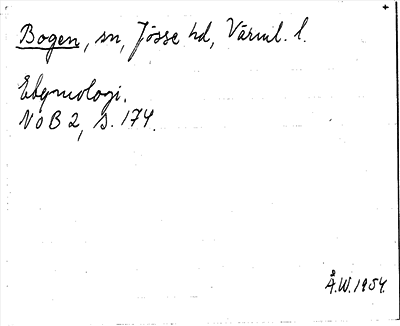 Bogen, sn, Jösse hd, Värml. l.
Etymologi.
NoB 2, s. 174.
Å.W. 1954.